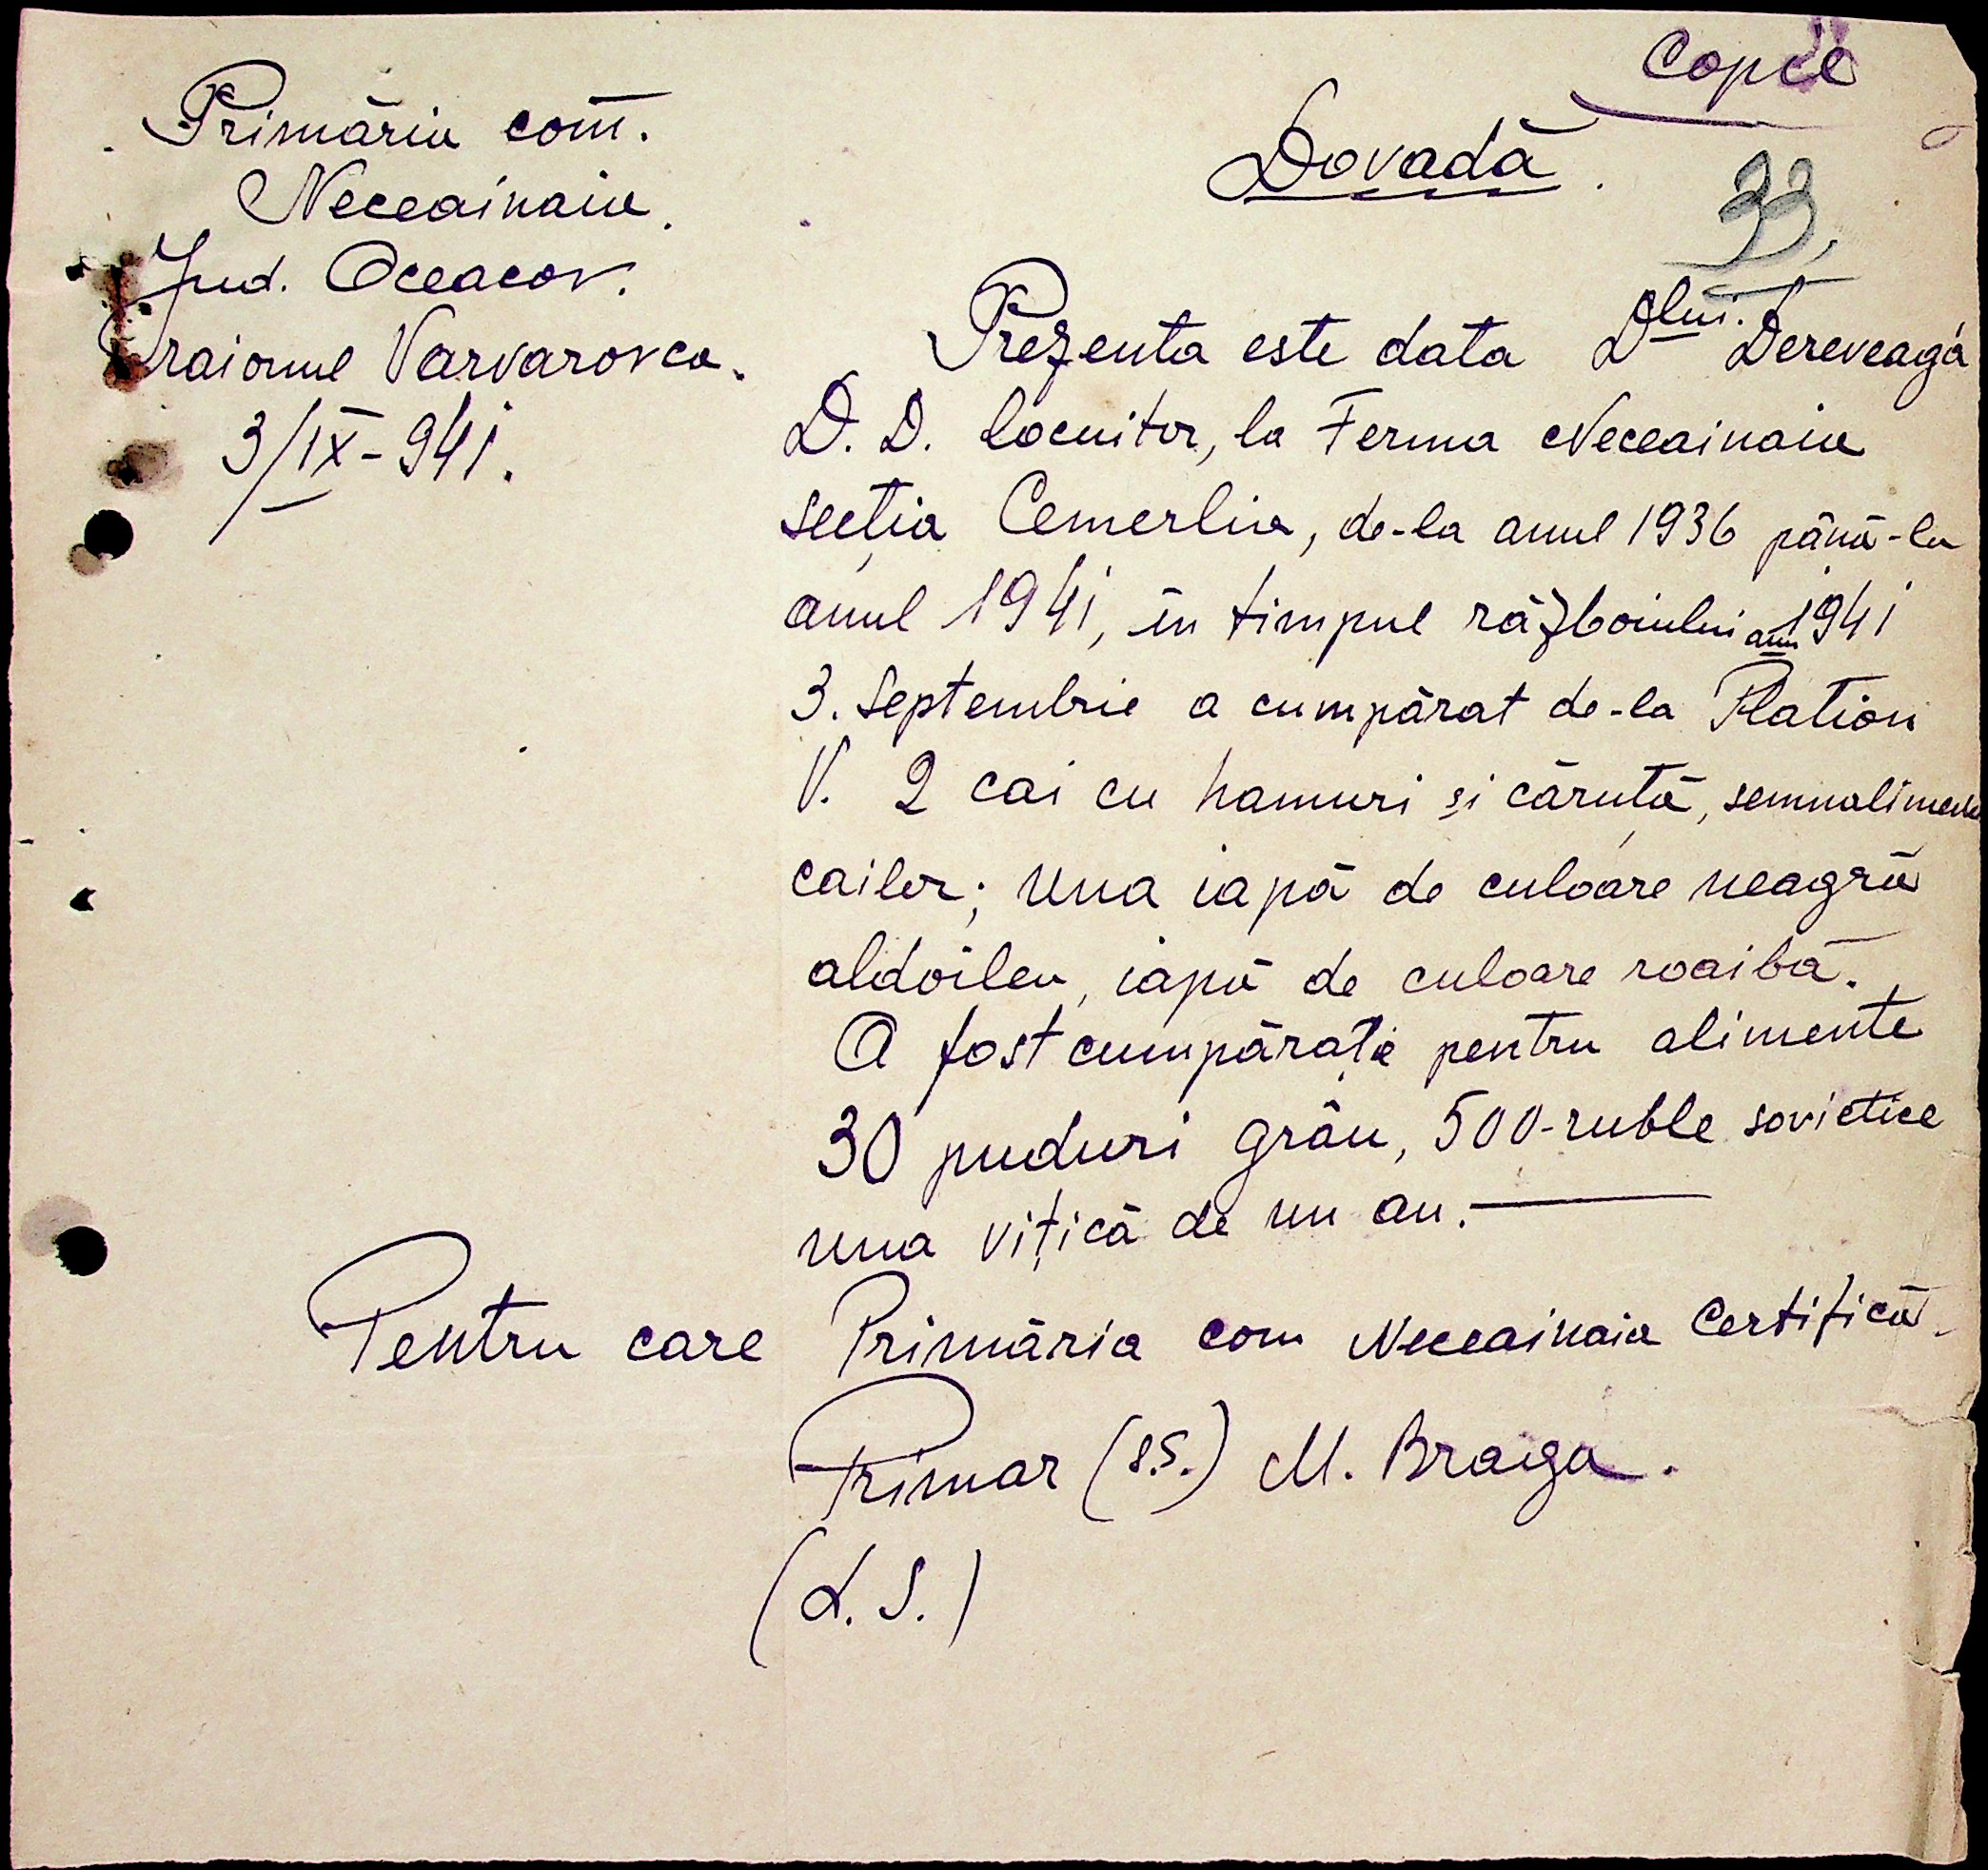 Copie
Primăria com.
Neceainaia.
Jud. Oceacov.
raionul Varvarovca.
3/IX-941.
Dovadă.
33,
Prezenta este data Dlui. Dereveagă
D. D. locuitor, la Ferma Neceainaia
secția Cemerlia, de-la anul 1936 până-la
anul 1941, în timpul războiului anu 1941
3. Septembrie a cumpărat de-la Plation
V. 2 cai cu hamuri și căruță, semnalimente
cailor; una iapă de culoare neagră
aldoilea, iapă de culoare roaibă.
A fost cumpărație pentru alimente
30 puduri grâu, 500-ruble sovietice
una vițică de un an.
Pentru care Primăria com Neceainaia Certifică.
Primar (s.s.) M. Braiga.
(L.S.)